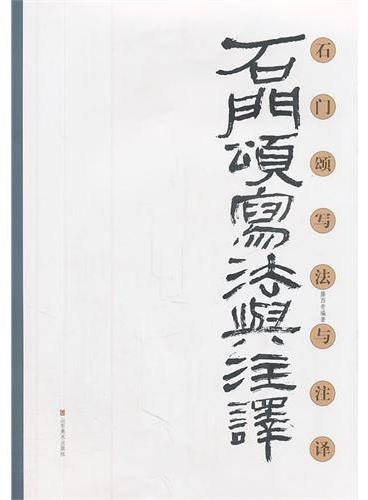 石门颂写法与注译
石門頌寫法與注譯
山东美术出版社